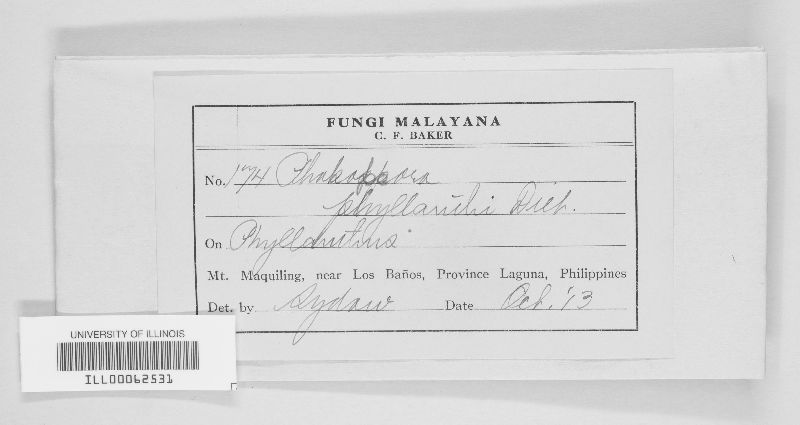 FUNGI MALAYANA
C. F. BAKER
No. 174 Phakopsora
phyllanthi Diet.
On Phyllanthus
Mt. Maquiling, near Los Baños, Province Laguna, Philippines
Det. by Sydow Date Oct. '13
UNIVERSITY OF ILLINOIS
ILL00062531